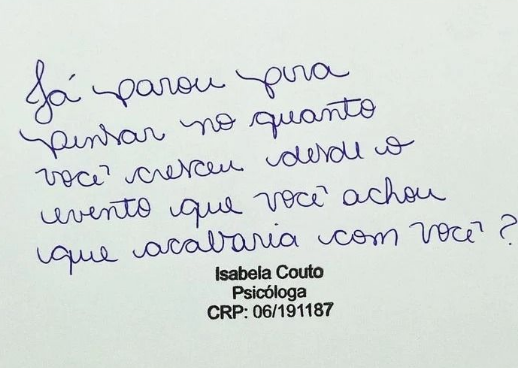 Já parou pra
pensar no quanto
você cresceu desde o
evento que você achou
que acabaria com você?
Isabela Couto
Psicóloga
CRP: 06/191187